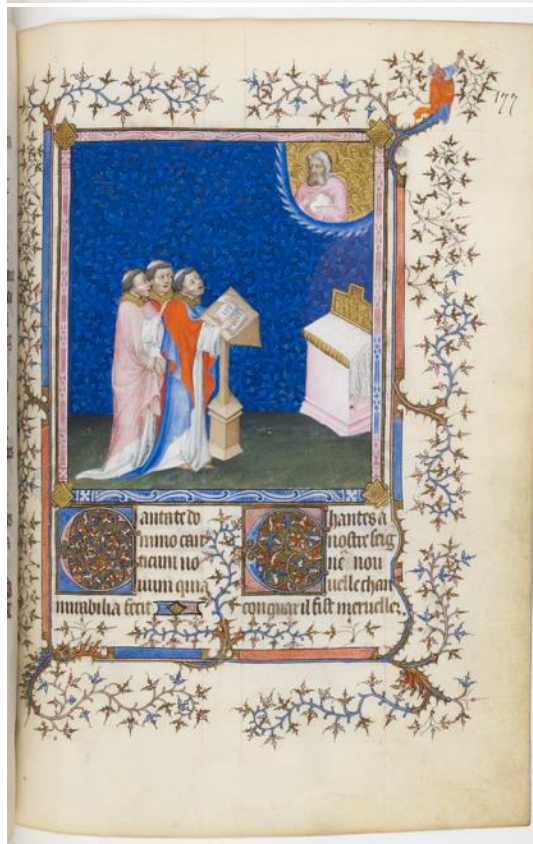 177
Cantate do
mino can
ticum no
uum quia
mirabilia fecit
Chantes a
nostre seig
nouuelle chan
con quar il fist merueilles